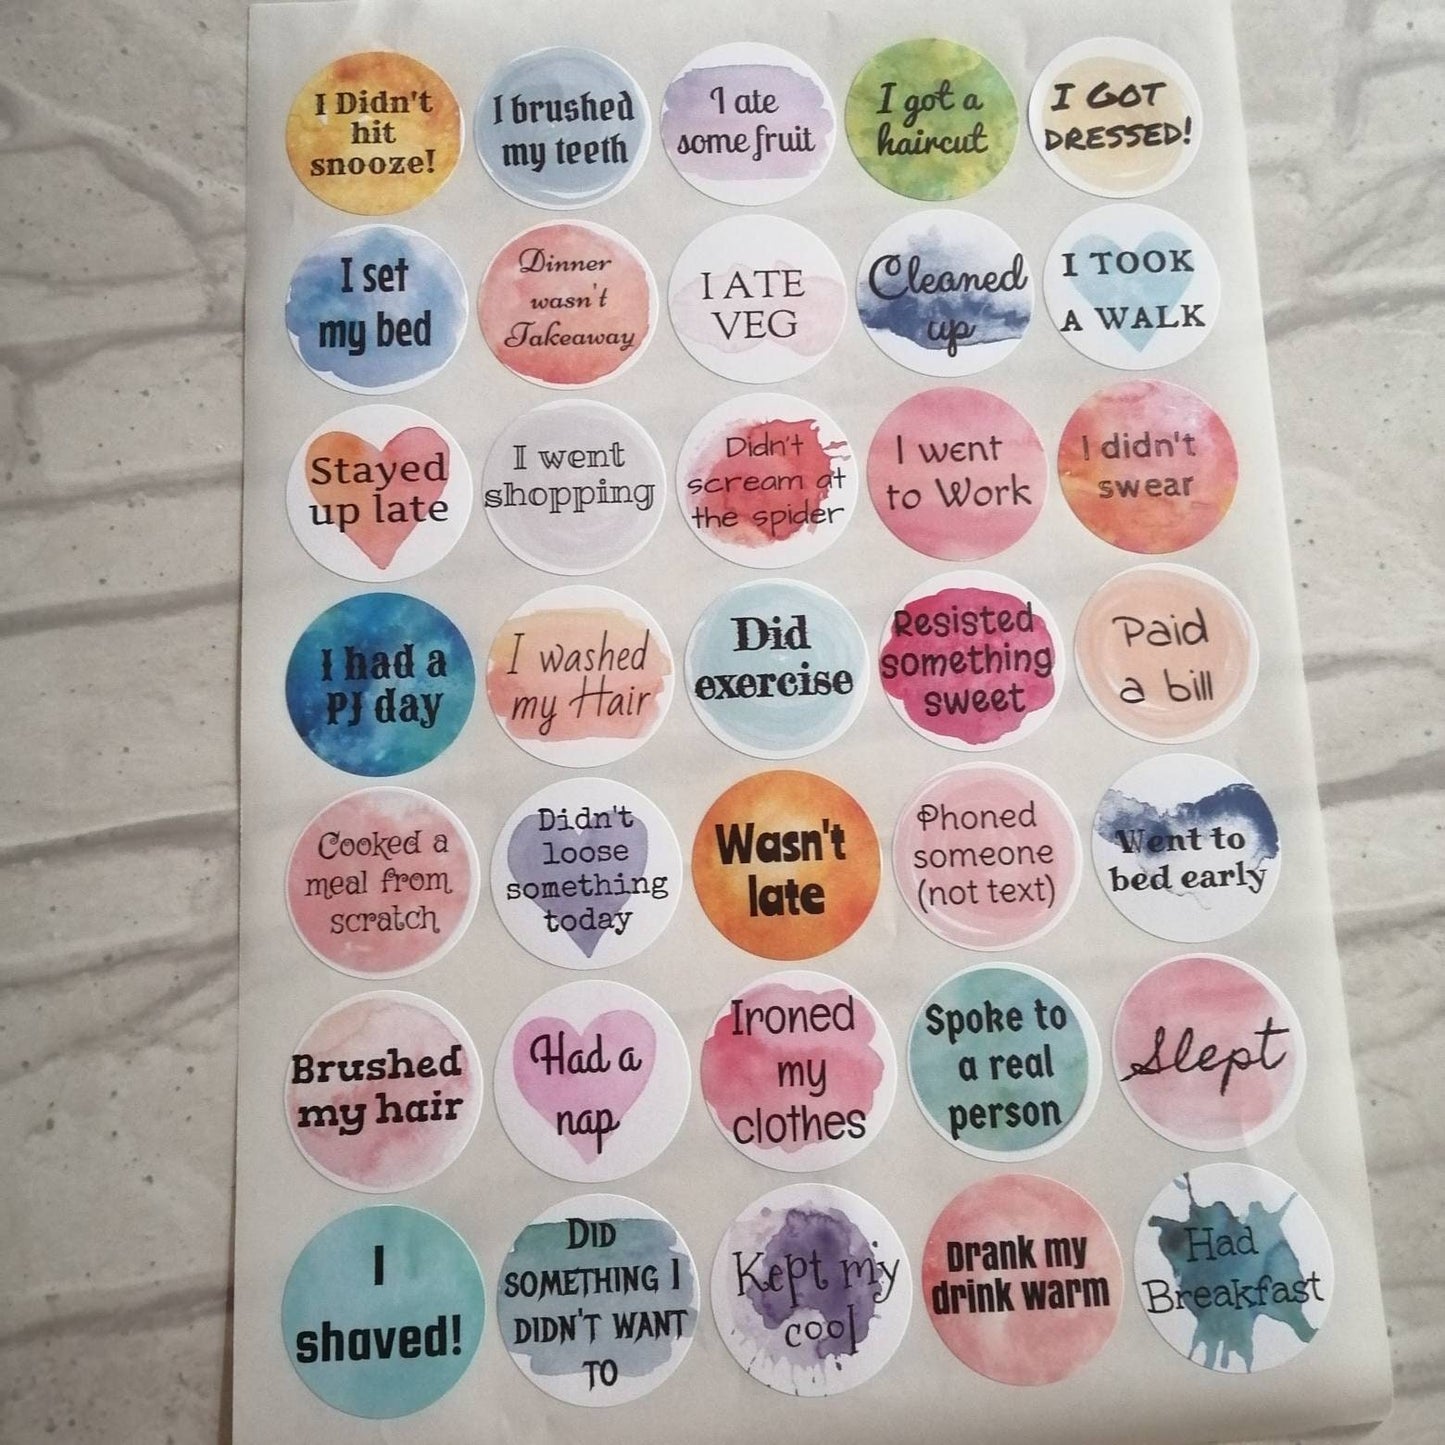 I Didn't
hit
snooze!
I brushed
my teeth
I ate
some fruit
I got a
haircut
I GOT
DRESSED!
I set
my bed
Dinner
wasn't
Takeaway
I ATE
VEG
Cleaned
up
I TOOK
A WALK
Stayed
up late
I went
shopping
Didn't
scream at
the spider
I went
to Work
I didn't
swear
I had a
PJ day
I washed
my Hair
Did
exercise
Resisted
something
sweet
Paid
a bill
Cooked a
meal from
scratch
Didn't
loose
something
today
Wasn't
late
Phoned
someone
(not text)
Went to
bed early
Brushed
my hair
Had a
nap
Ironed
my
clothes
Spoke to
a real
person
Slept
I
shaved!
DID
SOMETHING I
DIDN'T WANT
TO
Kept my
cool
Drank my
drink warm
Had
Breakfast